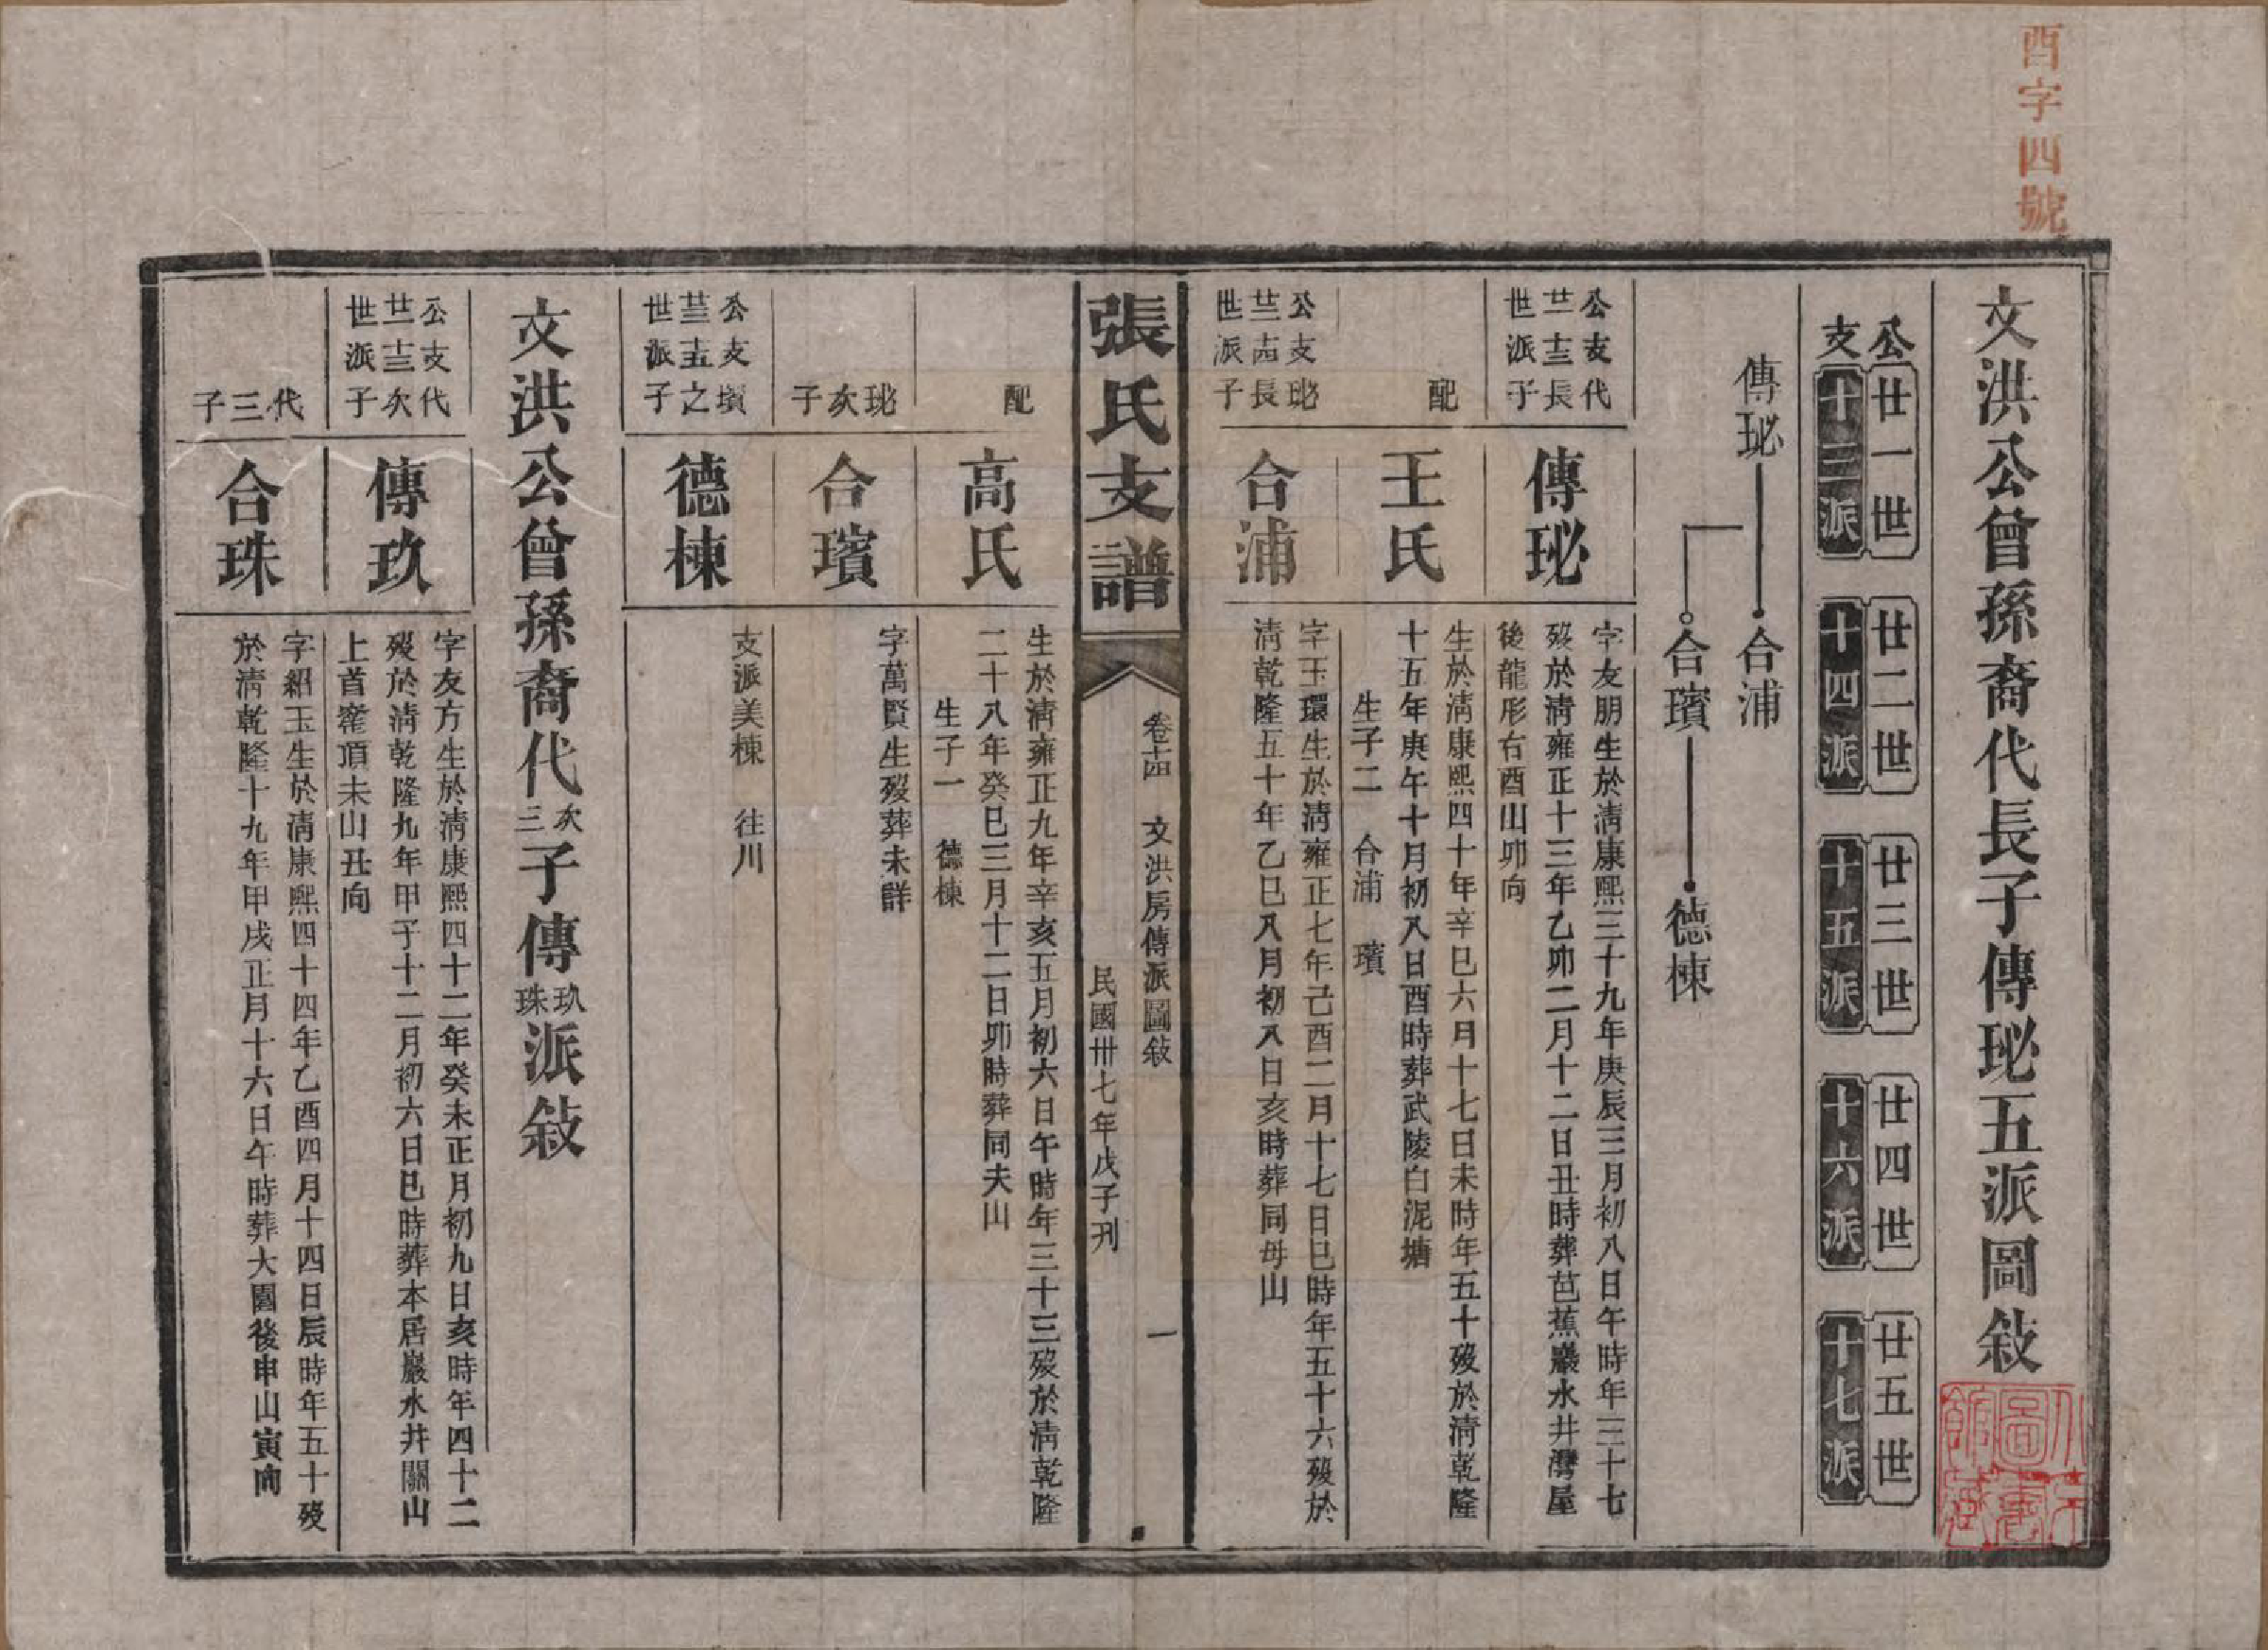 酉字四號
文洪公曾孫裔代長子傳珌五派圖敍
公支
廿一世 十三派
廿二世 十四派
廿三世 十五派
廿四世 十六派
廿五世 十七派
傳珌 合浦
合璸 德棟
公支代
廿十三長
世派子
傳珌
字友朋生於淸康熙三十九年庚辰三月初八日午時年三十七
歿於淸雍正十三年乙卯二月十二日丑時葬芭蕉巖水井灣屋
後龍形右酉山卯向
配
王氏
生於淸康熙四十年辛巳六月十七日未時年五十歿於淸乾隆
十五年庚午十月初八日酉時葬武陵白泥塘
生子二 合浦 璸
公支珌
廿二十四長
世派子
合浦
字玉環生於淸雍正七年己酉二月十七日巳時年五十六歿於
淸乾隆五十年乙巳八月初八日亥時葬同母山
張氏支譜
卷十四 文洪房傳派圖敍 一
民國卅七年戊子刊
配
高氏
生於淸雍正九年辛亥五月初六日午時年三十三歿於淸乾隆
二十八年癸巳三月十二日卯時葬同夫山
生子一 德棟
珌次子
合璸
字萬賢生歿葬未詳
公支璸
廿三十五之
世派子
德棟
支派美棟 往川
文洪公曾孫裔代次三子傳玖珠派敍
公支代
廿一十三次
世派子
傳玖
字友方生於淸康熙四十二年癸未正月初九日亥時年四十二
歿於淸乾隆九年甲子十二月初六日巳時葬本居巖水井關山
上首窰頂未山丑向
代三子
合珠
字紹玉生於淸康熙四十四年乙酉四月十四日辰時年五十歿
於淸乾隆十九年甲戌正月十六日午時葬大園後申山寅向